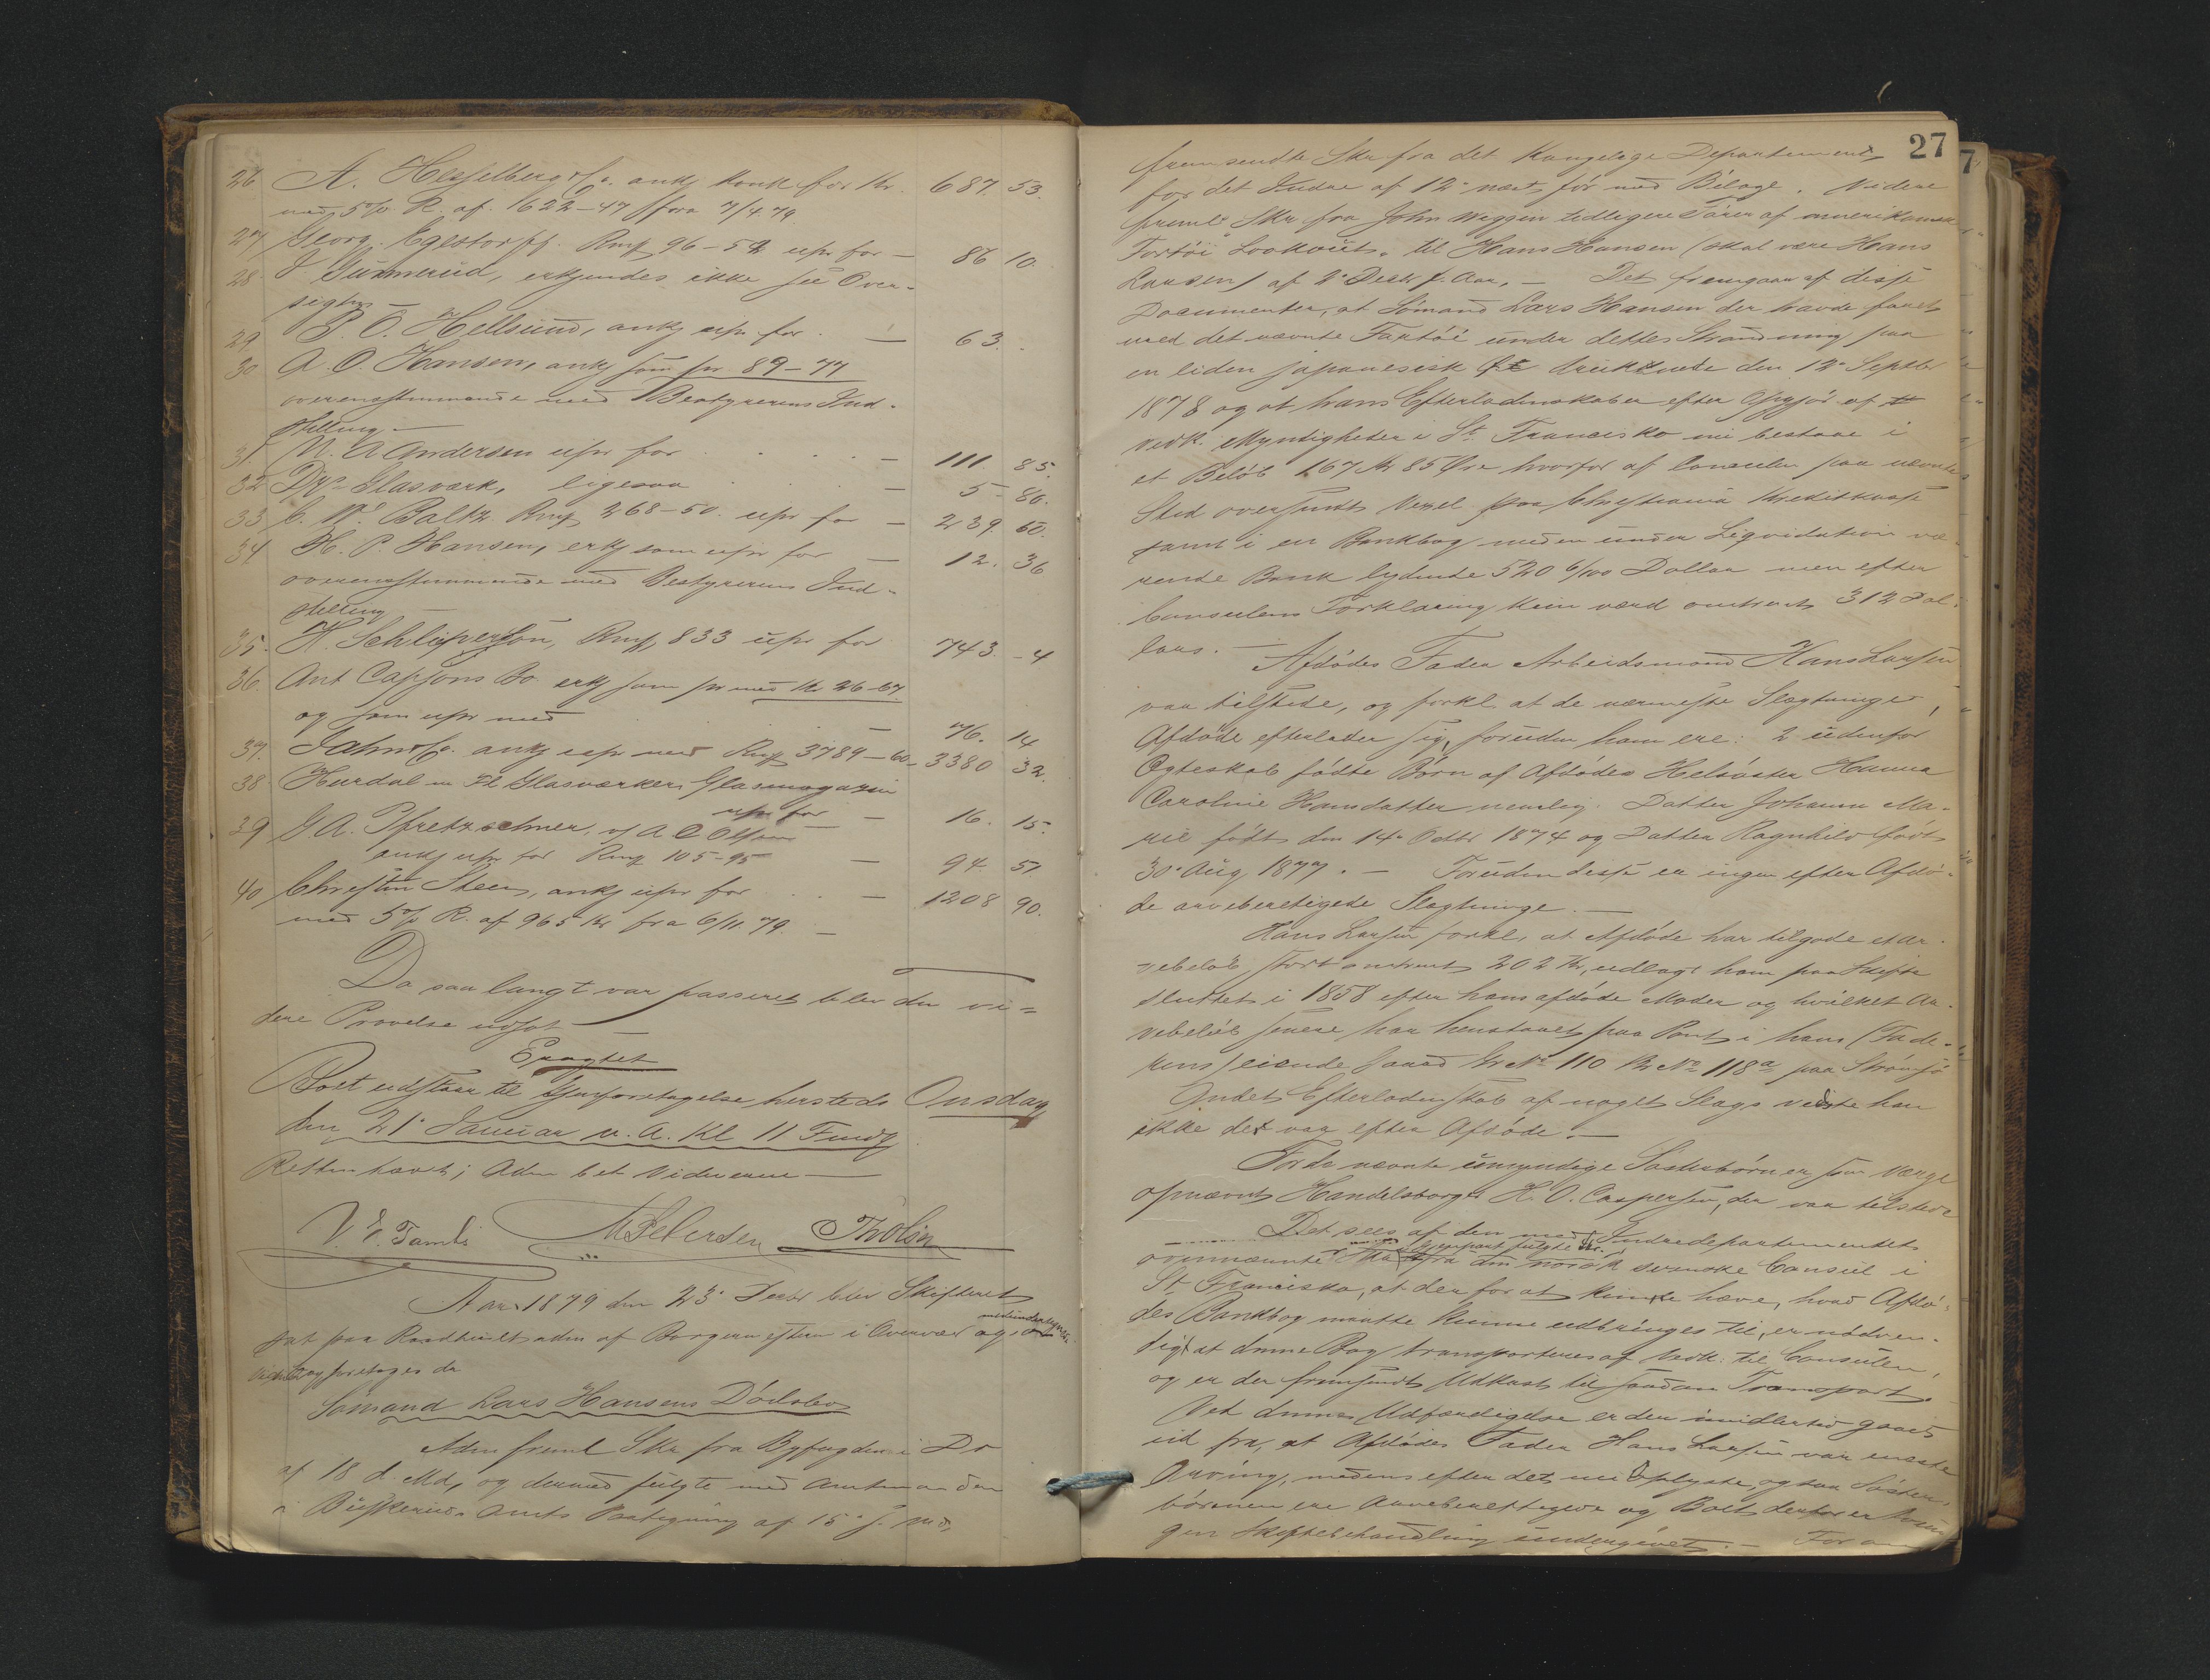 26 A. Hesselberg & Co. ank konk for Kr. 687. 53.
med 5% R. af 1622–47 fra 7/4 79
27 Georg Egestorff Rmp 96–52 upr for – 86 10.
28 J Gunnerud, erkjendes ikke see Over-
sigten –
29 P. O. Hellsund, ank upr for – 63. .
30 A. O. Hansen, ank som pr 89–77
overensstemmende med Bestyrerens Ind-
stilling –
31 N. A Andersen upr for . . . – 111. 85.
32 Glasværk, ligesaa . . – 5– 80.
33 C. W. Baltz. Rmp 268–50. upr for – 239. 60.
34 H. P. Hansen, erkj som upr for – 12. 36
overensstemmende med Bestyrerens Ind-
stilling –
35. H. Schlüper Rmp 833 upr for 743. – 4
36. Ant Capjons Bo. erkj som pr med Kr 26–67
og som upr med . . – 76. 14
37. Jahn & Co. ank upr med Rmp 3789–60– 3380 32.
38 Hurdal m fl Glasværkers Glasmagazin
upr for – 16. 15.
39 G. A. Pfretzschner v/ A C Olsen
ank upr for Rmp 105–95 – 94 51
40 Christian Steen, ank upr for . . – 1208 90.
med 5% R. af 965 Kr fra 6/11. 79. –
Da saa langt var passeret blev den vi-
dere Prøvelse udsat –
Eragtet
Boet udstaar til Gjenforetagelse hersteds Onsdag
den 21. Januar n. A. Kl 11 Fmdg
Retten hævet; Adm bet Vidnerne –
M Pedersen Tholin
Aar 1879 den 23. Decbr blev Skifteret
sat paa Raadhuset adm af Borgermesteren i Overvær af medundertegnede
Vidner og foretoges da
Sømand Lars Hansens Dødsbo
Adm freml Skr fra Byfogden i Dr
af 18 d. Md, og dermed fulgte med Amtmanden
i Buskeruds Amts Paategning af 15. s. Md,
27
fremsendte Skr fra det Kongelige Departement
for det Indre af 12. næst før med Bilage. Videre
freml Skr fra John Wiggen tidligere Fører af amerikansk
Fartøi "Lookout" til Hans Hansen (skal være Hans
Larsen) af Decbr f. Aar. – Det fremgaar af disse
Documenter, at Sømand Lars Hansen der havde faret
med det nævnte Fartøi under dettes Stranding paa
en liden japanesisk druknede den 12. Septbr
1878 og at hans Efterladenskaber efter Opgjør af
vedk. Myndigheder i St. Francisko nu bestaar i
et Beløb 167 Kr 85 Øre hvorfor af Consulen paa nævnte
Sted oversendt Vexel paa Christiania Kreditkasse
samt i en Bankbog med en under Liqvidation væ-
rende Bank lydende 520 6/100 Dollar men efter
Consulens Forklaring kun værd omtrent 312 Dol-
lars. –
Afdødes Fader Arbeidsmand Hans Larsen
var tilstede, og forkl at de nærmeste Slægtninge,
Afdøde efterlader sig, foruden ham ere: 2 udenfor
Ægteskab fødte Børn af Afdødes Helsøster Hanna
Caroline Hansdatter nemlig: Datter Johanne Ma-
rie født den 14. Octbr 1874 og Datter Ragnhild født
30. Aug 1877. – Foruden disse er ingen efter Afdø-
de arveberettigede Slægtninge. –
Hans Larsen forkl, at Afdøde har tilgode et Ar-
vebeløb stort omtrent 202 Kr, udlagt ham paa Skifte
sluttet i 1858 efter hans afdøde Moder og hvilket Ar-
vebeløb senere har henstaaet paa Pant i hans (Fade-
rens) eiende Gaard Gr No 110 B No 118a paa Strømsø
Andet Efterladenskab af noget Slags vidste han
ikke der var efter Afdøde. –
For de nævnte umyndige Søsterbørn er som Værge
opnævnt Handelsborger H. O. Caspersen, der var tilstede
Det sees af den med Indredepartementets
ovennævnte Skr i Gjenpart fulgte Skr. fra den norsk svenske Consul i
St. Francisko, at der for at kunde hæve, hvad Afdø-
des Bankbog maatte kunne udbringes til, er nødven-
digt at denne Bog transporteres af Vedk. til Consulen,
og er der fremsendt Udkast til saadan Transport.
Ved dennes Udfærdigelse er der imidlertid gaaet
ud fra, at Afdødes Fader Hans Larsen var eneste
Arving, medens efter det nu Oplyste, ogsaa Søster-
børnene ere Arveberettigede og Boet derfor er
gen Skiftebehandling undergivet. – For